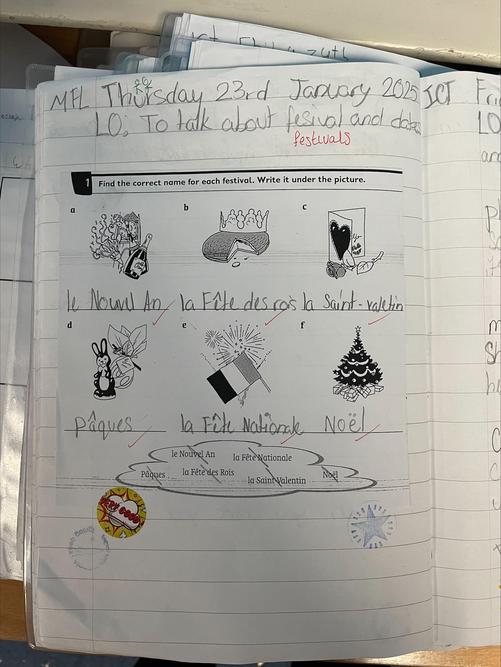 MFL Thursday 23rd January 2025 ICT
LO; To talk about fesival and dates
festivals
1 Find the correct name for each festival. Write it under the picture.
a b c
le Nouvel An la Fête des rois la Saint-valetin
d e f
Pâques la Fête Nationale Noël
le Nouvel An la Fête Nationale
Pâques la Fête des Rois la Saint Valentin Noël
VERY GOOD
LO